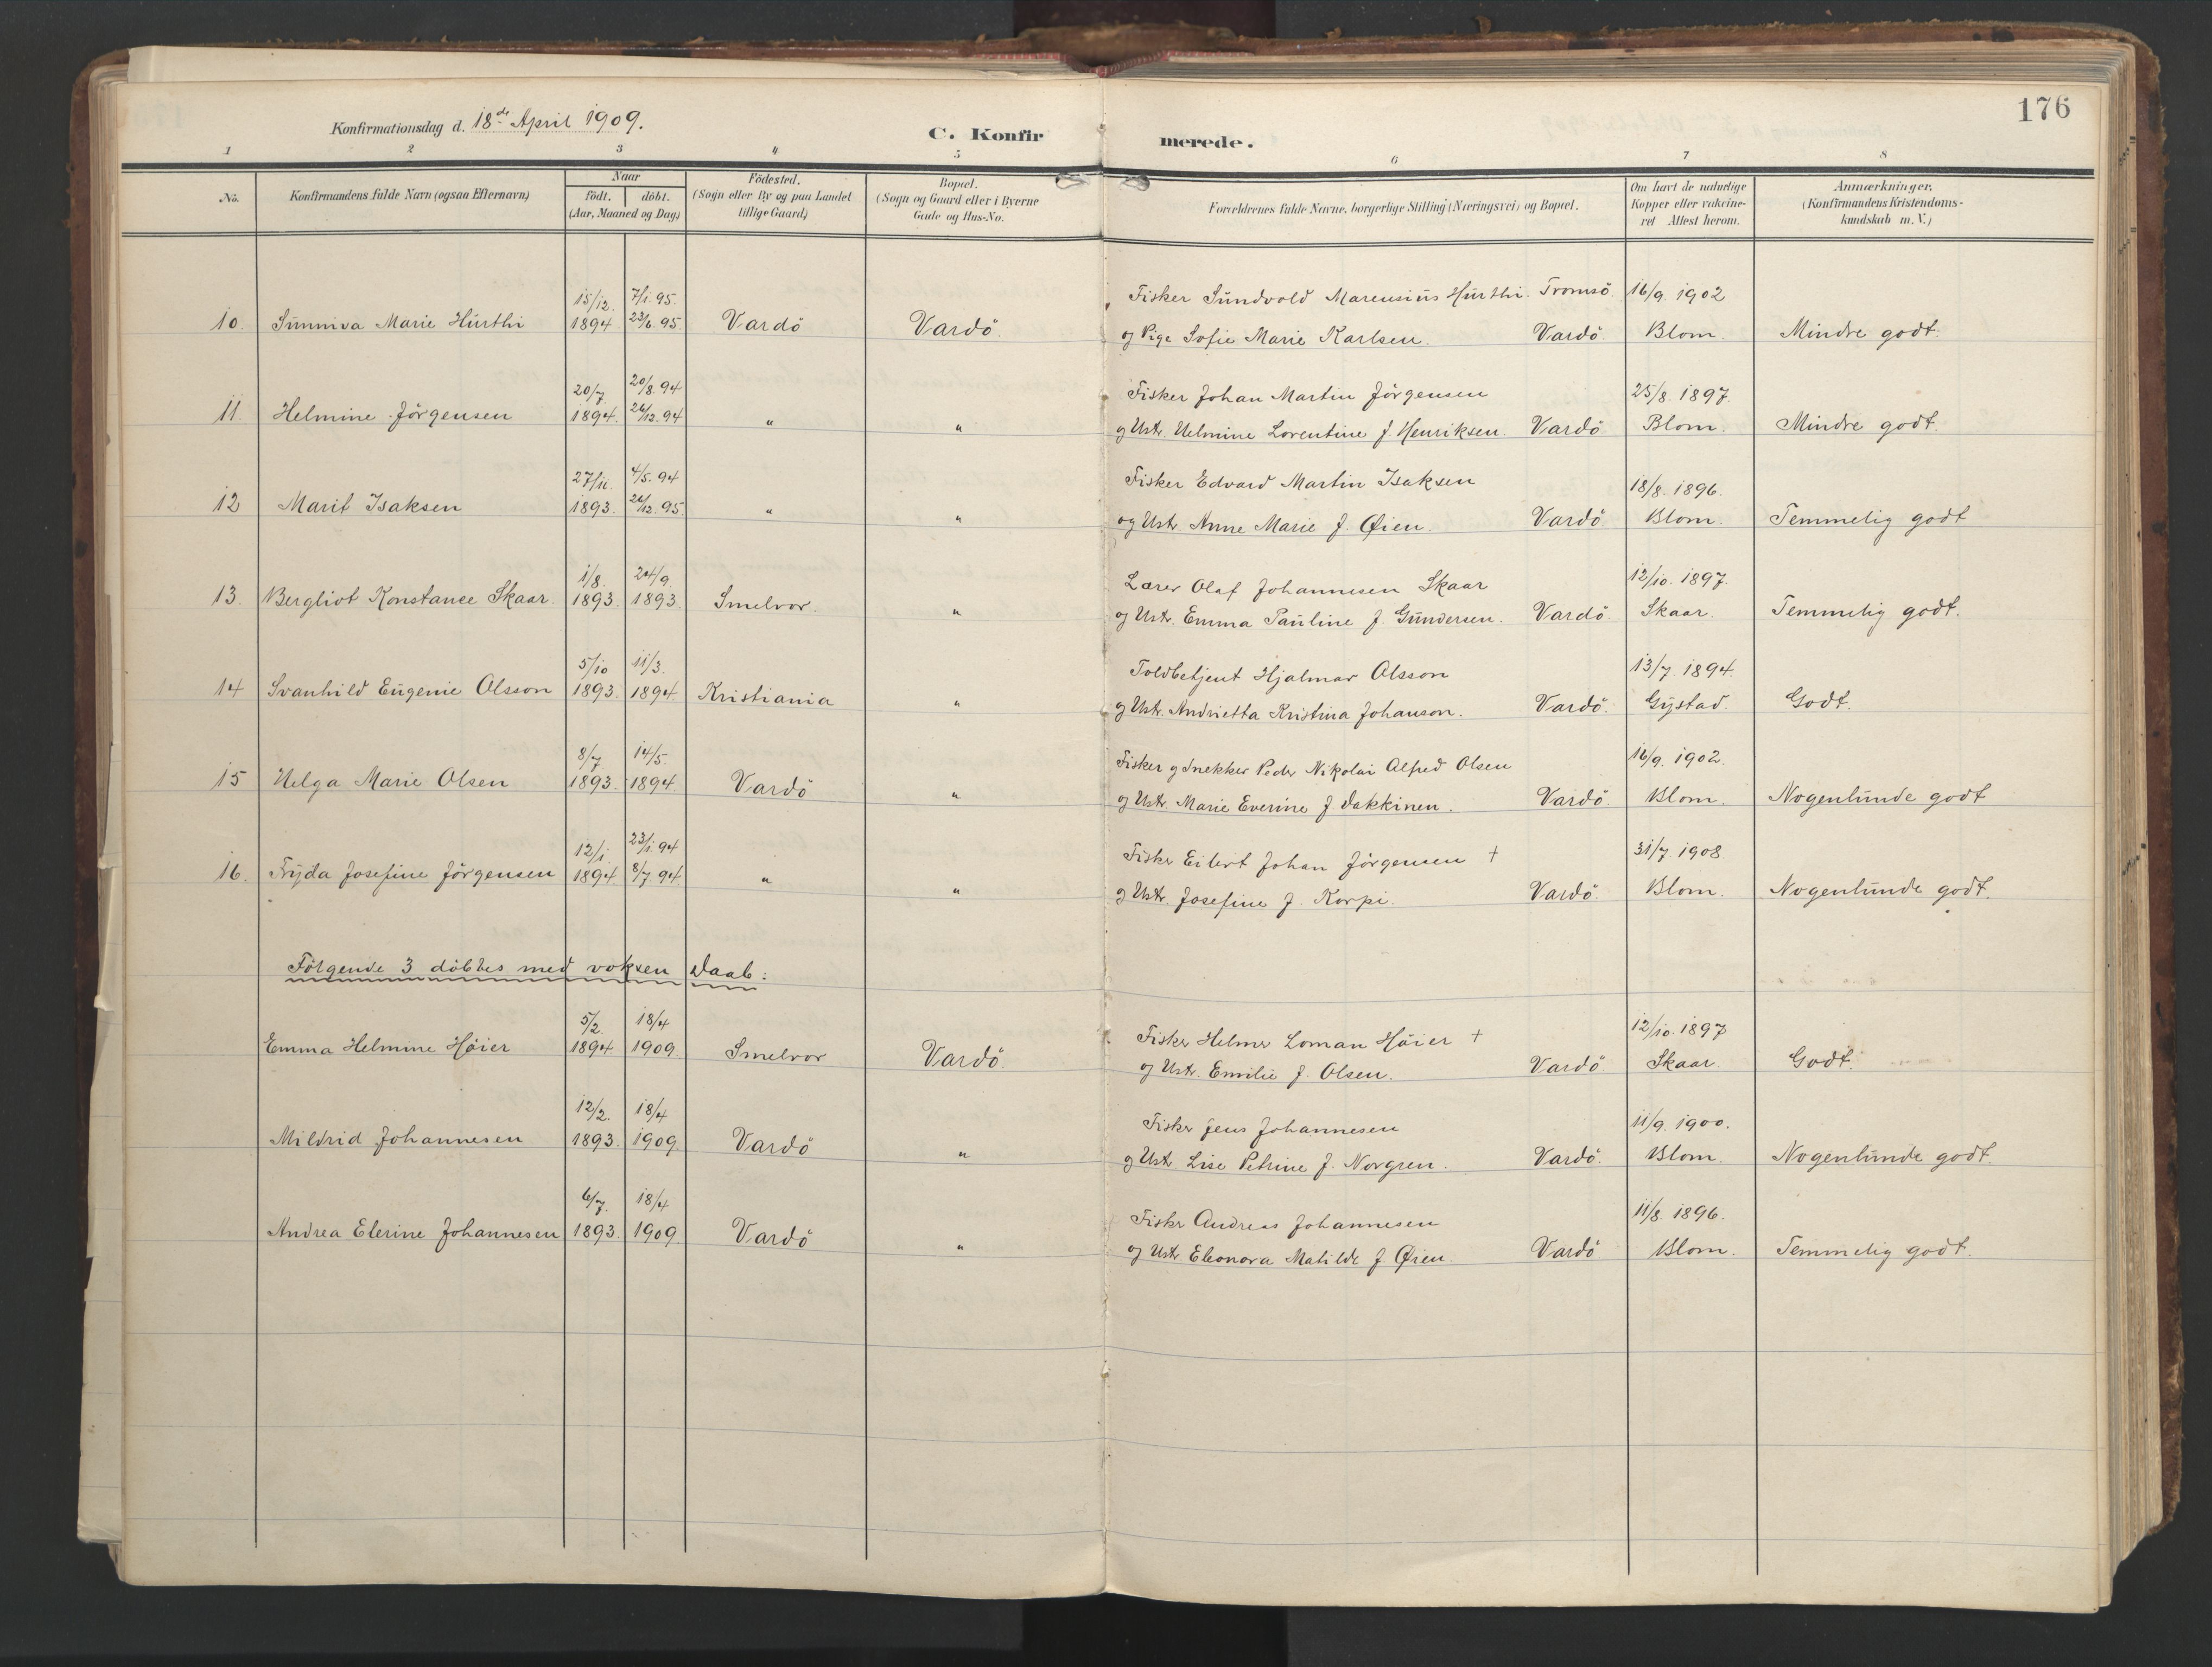 176
Konfirmationsdag d. 18de April 1909.
C. Konfir merede.
1 2 3 4 5 6 7 8
No. Konfirmandens fulde Navn (ogsaa Efternavn) Naar født. døbt. (Aar, Maaned og Dag) Fødested. (Sogn eller By og paa Landet tillige Gaard) Bopæl. (Sogn og Gaard eller i Byerne Gade og Hus-No. Forældrenes fulde Navne, borgerlige Stilling (Næringsvei) og Bopæl. Om havt de naturlige Kopper eller vakcineret Attest herom. Anmærkninger. (Konfirmandens Kristendomskundskab m. V.)
15/12. 7/1. 95. Fisker Sundvold Marensius Hürthi. Tromsö. 16/9. 1902
10. Sunniva Marie Hürthi 1894 23/6. 95. Vardö Vardö. og Pige Sofie Marie Karlsen. Vardö. Blom. Mindre godt.
20/7. 20/8. 94 Fisker Johan Martin Jörgensen 25/8. 1897.
11. Helmine Jörgensen 1894. 26/12. 94 " " og Ustr. Helmine Lorentine f. Henriksen. Vardö Blom. Mindre godt.
27/11. 4/5. 94 Fisker Edvard Martin Isaksen 18/8. 1896.
12 Marit Isaksen 1893. 26/12. 95. " " og Ustr. Anne Marie f. Øien. Vardö Blom. Temmelig godt
1/8. 24/9. Lærer Olaf Johannesen Skaar 12/10. 1897.
13. Bergliot Konstance Skaar. 1893. 1893. Smelvor. " og Ustr. Emma Pauline f. Gundersen. Vardö. Skaar. Temmelig godt.
5/10 11/3. Toldbetjent Hjalmar Olsson 13/7. 1894.
14 Svanhild Eugenie Olsson 1893. 1894. Kristiania " og Ustr. Andrietta Kristina Johanson. Vardö. Gystad. Godt.
8/7 14/5. Fisker og Snekker Peder Nikolai Alfred Olsen 16/9. 1902.
15 Helga Marie Olsen 1893. 1894. Vardö " og Ustr. Marie Everine f. Vakkinen. Vardö. Blom. Nogenlunde godt
12/1. 23/1. 94 Fisker Eilert Johan Jörgensen † 31/7. 1908
16. Fryda Josefine Jörgensen 1894 8/7. 94. " " og Ustr. Josefine f. Korpi. Vardö. Blom. Nogenlunde godt.
Fölgende 3 döbtes med voksen Daab:
5/2. 18/4 Fisker Helmer Loman Höier † 12/10. 1897
Emma Helmine Höier 1894 1909. Smelvor Vardö og Ustr. Emilie f. Olsen. Vardö Skaar. Godt.
12/2. 18/4 Fisker Jens Johannesen 11/9. 1900.
Mildrid Johannesen 1893. 1909. Vardö " og Ustr. Lise Petrine f. Norgren. Vardö. Blom. Nogenlunde godt
6/7. 18/4 Fisker Andreas Johannesen 11/8. 1896.
Andrea Elerine Johannesen 1893. 1909. Vardö " og Ustr Eleonora Matilde f Øien. Vardö Blom. Temmelig godt.